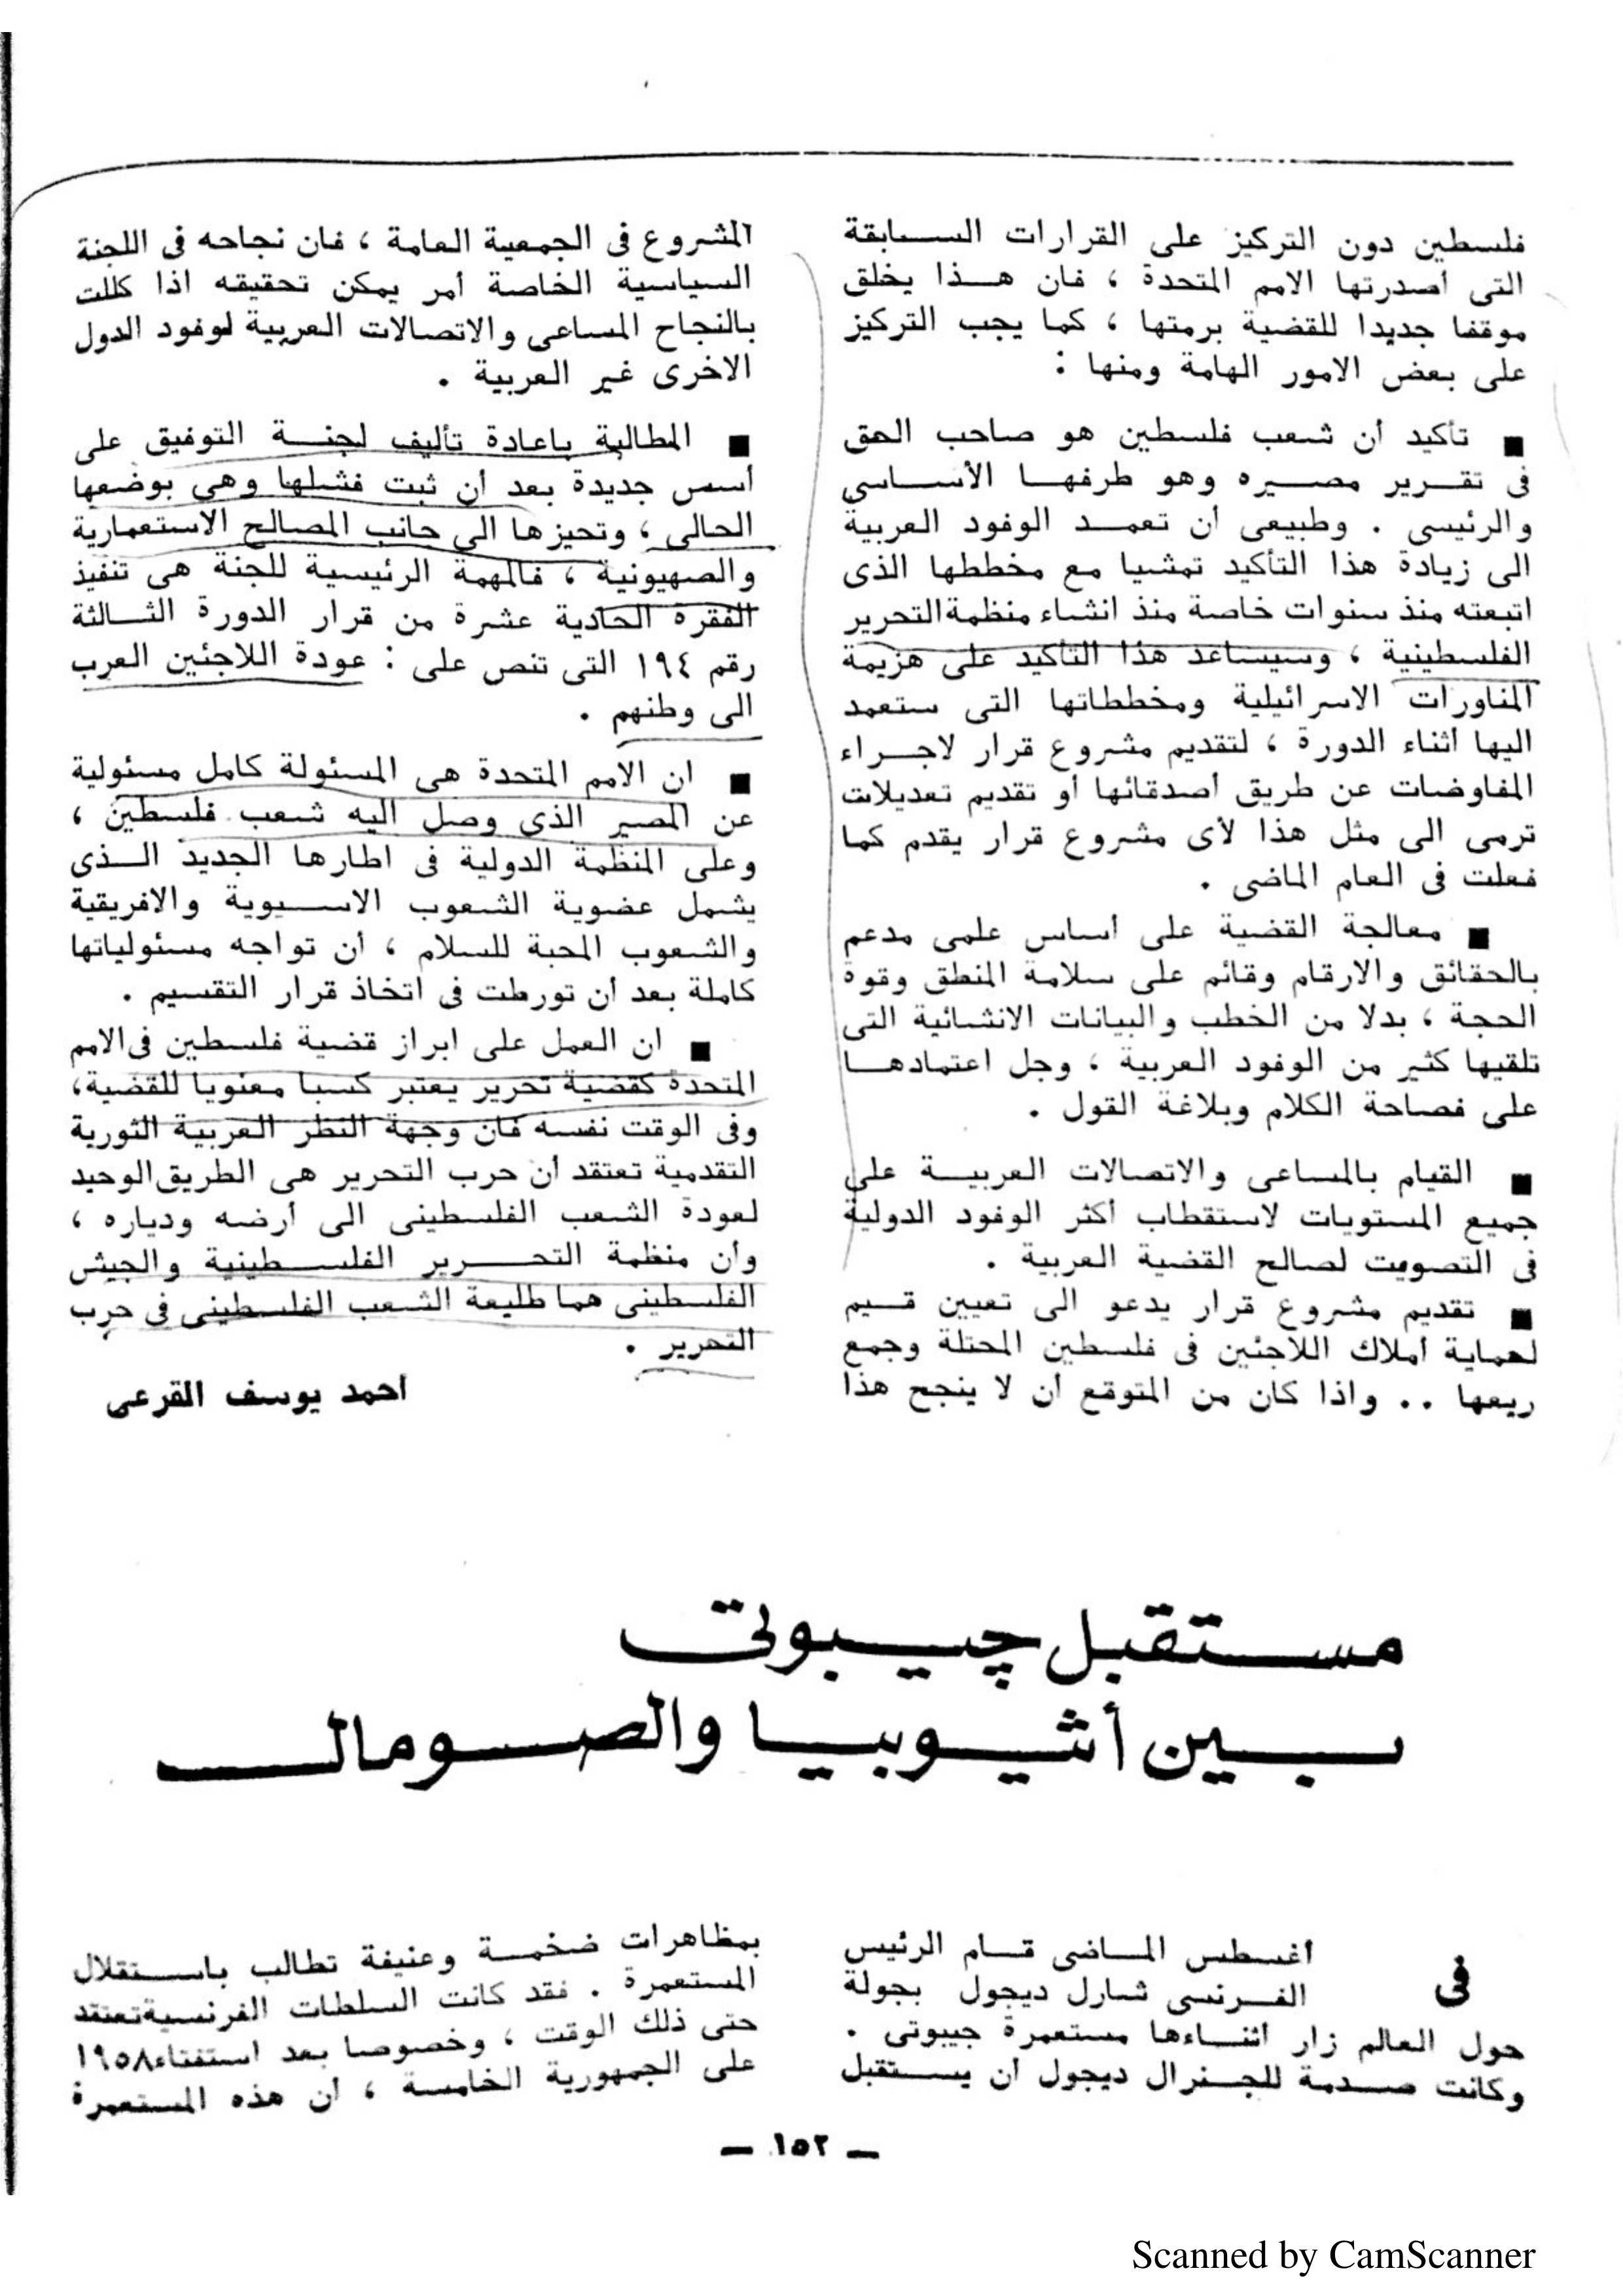 فلسطين دون التركيز على القرارات السابقة
التى أصدرتها الامم المتحدة ، فان هذا يخلق
موقفا جديدا للقضية برمتها ، كما يجب التركيز
على بعض الامور الهامة ومنها :
■ تأكيد أن شعب فلسطين هو صاحب الحق
فى تقرير مصيره وهو طرفها الأساسى
والرئيسى . وطبيعى أن تعمد الوفود العربية
الى زيادة هذا التأكيد تمشيا مع مخططها الذى
اتبعته منذ سنوات خاصة منذ انشاء منظمة التحرير
الفلسطينية ، وسيساعد هذا التأكيد على هزيمة
المناورات الاسرائيلية ومخططاتها التى ستعمد
اليها أثناء الدورة ، لتقديم مشروع قرار لاجراء
المفاوضات عن طريق أصدقائها أو تقديم تعديلات
ترمى الى مثل هذا لأى مشروع قرار يقدم كما
فعلت فى العام الماضى .
■ معالجة القضية على أساس علمى مدعم
بالحقائق والارقام وقائم على سلامة المنطق وقوة
الحجة ، بدلا من الخطب والبيانات الانشائية التى
تلقيها كثير من الوفود العربية ، وجل اعتمادها
على فصاحة الكلام وبلاغة القول .
■ القيام بالمساعى والاتصالات العربية على
جميع المستويات لاستقطاب أكثر الوفود الدولية
فى التصويت لصالح القضية العربية .
■ تقديم مشروع قرار يدعو الى تعيين قيم
لحماية أملاك اللاجئين فى فلسطين المحتلة وجمع
ريعها .. واذا كان من المتوقع أن لا ينجح هذا
المشروع فى الجمعية العامة ، فان نجاحه فى اللجنة
السياسية الخاصة أمر يمكن تحقيقه اذا كللت
بالنجاح المساعى والاتصالات العربية لوفود الدول
الاخرى غير العربية .
■ المطالبة باعادة تأليف لجنة التوفيق على
أسس جديدة بعد أن ثبت فشلها وهى بوضعها
الحالى ، وتحيزها الى جانب المصالح الاستعمارية
والصهيونية ، فالمهمة الرئيسية للجنة هى تنفيذ
الفقرة الحادية عشرة من قرار الدورة الثالثة
رقم ١٩٤ التى تنص على : عودة اللاجئين العرب
الى وطنهم .
■ ان الامم المتحدة هى المسئولة كامل مسئولية
عن المصير الذى وصل اليه شعب فلسطين ،
وعلى المنظمة الدولية فى اطارها الجديد الذى
يشمل عضوية الشعوب الاسيوية والافريقية
والشعوب المحبة للسلام ، أن تواجه مسئولياتها
كاملة بعد أن تورطت فى اتخاذ قرار التقسيم .
■ ان العمل على ابراز قضية فلسطين فى الامم
المتحدة كقضية تحرير يعتبر كسبا معنويا للقضية،
وفى الوقت نفسه فان وجهة النظر العربية الثورية
التقدمية تعتقد أن حرب التحرير هى الطريق الوحيد
لعودة الشعب الفلسطينى الى أرضه ودياره ،
وأن منظمة التحرير الفلسطينية والجيش
الفلسطينى هما طليعة الشعب الفلسطينى فى حرب
التحرير .
أحمد يوسف القرعى
مستقبل چيبوتى
بين أثيوبيا والصومال
فى أغسطس الماضى قام الرئيس
الفرنسى شارل ديجول بجولة
حول العالم زار أثناءها مستعمرة جيبوتى .
وكانت صدمة للجنرال ديجول أن يستقبل
بمظاهرات ضخمة وعنيفة تطالب باستقلال
المستعمرة . فقد كانت السلطات الفرنسية تعتقد
حتى ذلك الوقت ، وخصوصا بعد استفتاء ١٩٥٨
على الجمهورية الخامسة ، أن هذه المستعمرة
— ١٥٢ —
Scanned by CamScanner